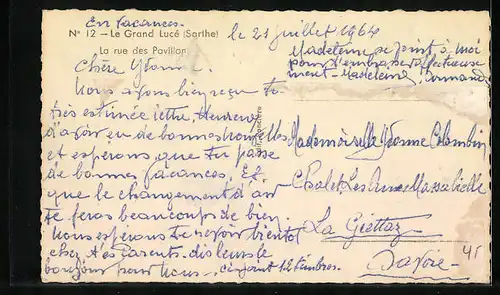 En vacances
N° 12 – Le Grand Lucé (Sarthe)
La rue des Pavillon
le 21 juillet 1964
Chère Yvonne.
Nous avons bien reçu ta
très estimée lettre, Heureux
d'avoir eu de bonnes nouvelles
et espérons que tu passe
de bonnes vacances. Et
que le changement d'air
te feras beaucoup de bien.
Nous espérons te revoir bientot
chez tes Parents. dis leurs le
bonjour pour nous. ci-joint 12 timbres.
Madeleine se joint à moi
pour t'embrasser affectueuse
ment - Madeleine, Armand
Mademoiselle Yvonne Colombin
Chalet Les Ames Massabielle
La Giettaz
Savoie
45